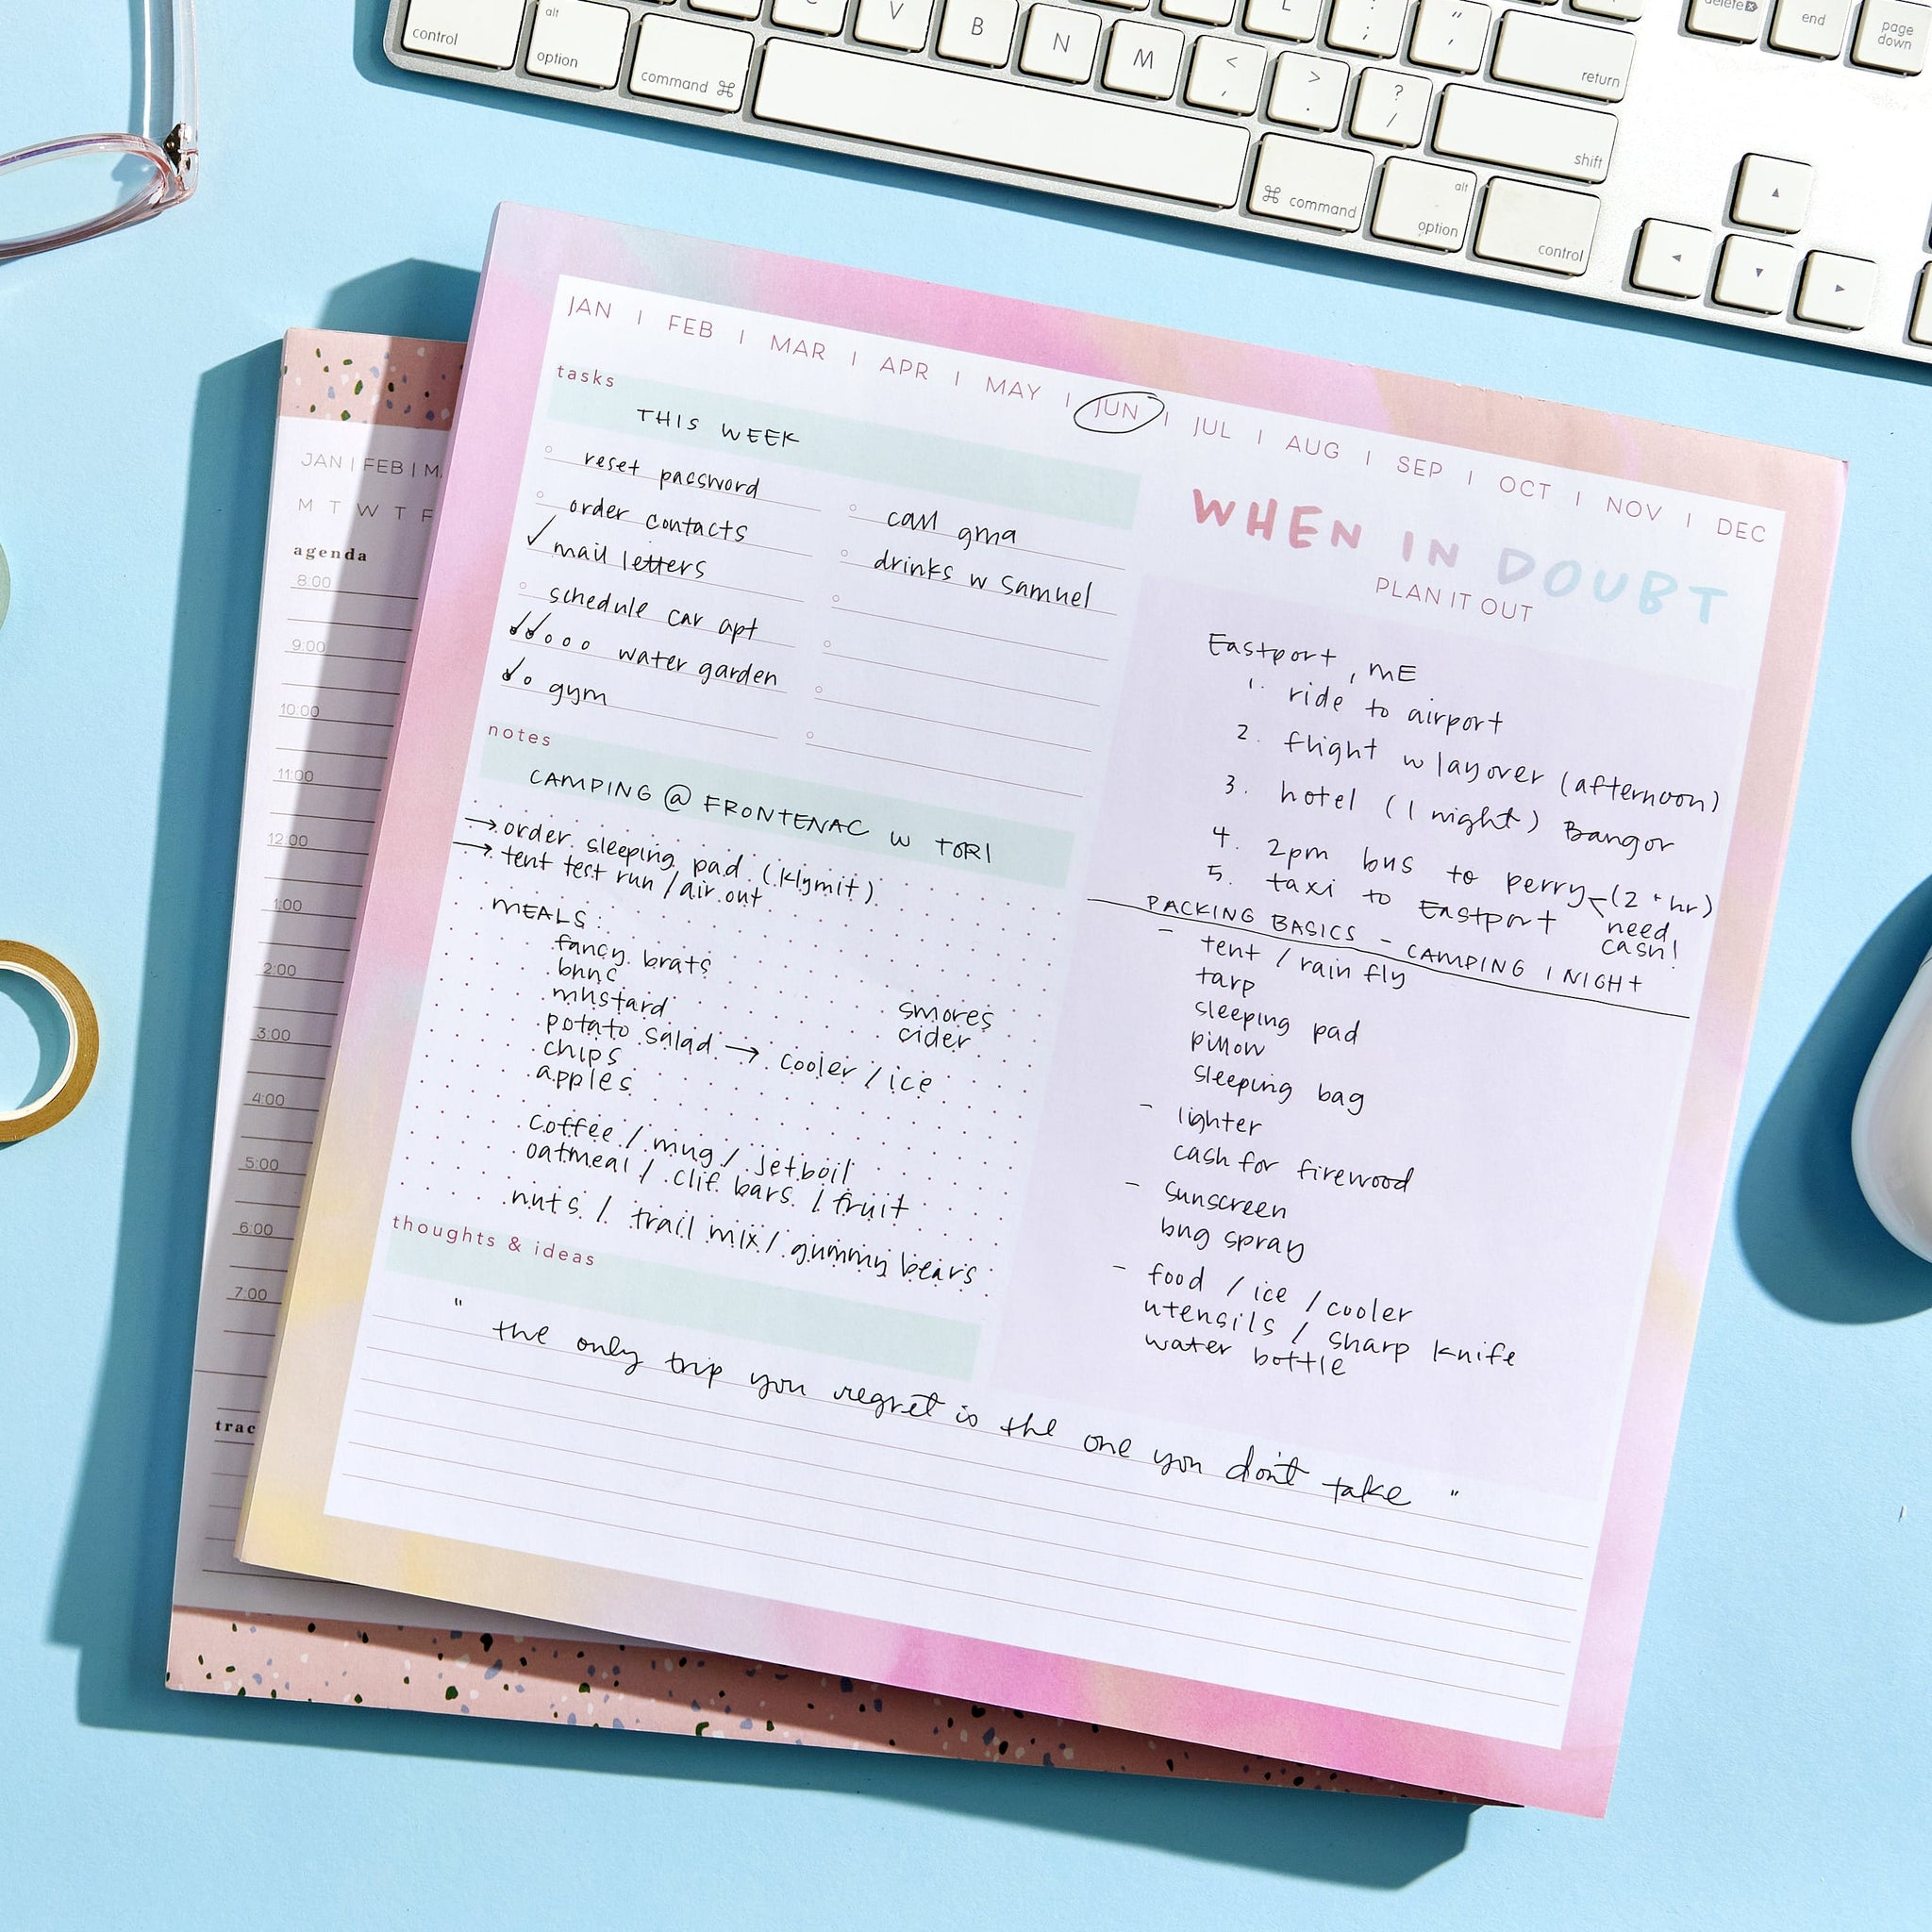 control
alt
option
command ⌘
C
V
B
N
M
<
,
>
.
?
/
L
:
;
"
'
return
shift
⌘ command
alt
option
control
delete
end
page
down
JAN | FEB | MAR | APR | MAY | JUN | JUL | AUG | SEP | OCT | NOV | DEC
tasks
THIS WEEK
reset password
order contacts
mail letters
schedule car apt
water garden
gym
call gma
drinks w Samuel
notes
CAMPING @ FRONTENAC W TORI
→ order sleeping pad (klymit)
→ tent test run / air out
MEALS:
fancy brats
buns
mustard
potato salad → cooler / ice
chips
apples
smores
cider
coffee / mug / jetboil
oatmeal / clif bars / fruit
nuts / trail mix / gummy bears
thoughts & ideas
" the only trip you regret is the one you don't take "
WHEN IN DOUBT
PLAN IT OUT
Eastport, ME
1. ride to airport
2. flight w layover (afternoon)
3. hotel (1 night) Bangor
4. 2pm bus to perry (2+hr)
5. taxi to Eastport
need
cash!
PACKING BASICS - CAMPING 1 NIGHT
- tent / rain fly
tarp
sleeping pad
pillow
sleeping bag
- lighter
cash for firewood
- sunscreen
bug spray
- food / ice / cooler
utensils / sharp knife
water bottle
JAN | FEB | MA
M T W T F
agenda
8:00
9:00
10:00
11:00
12:00
1:00
2:00
3:00
4:00
5:00
6:00
7:00
trac